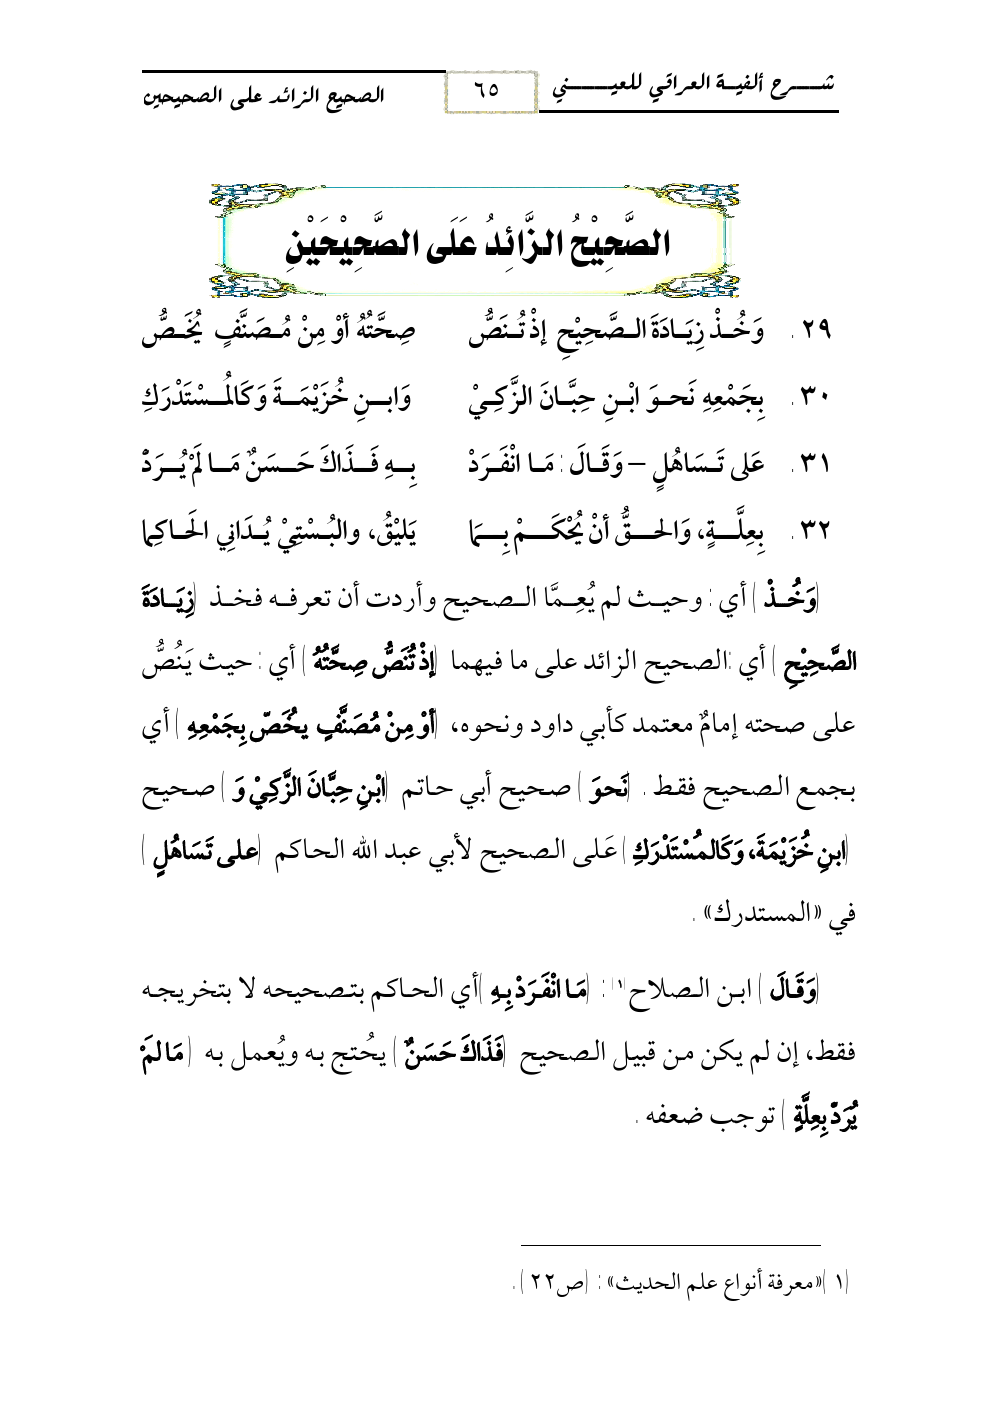 شـــرح ألفيـة العراقي للعيـــــني
٦٥
الصحيح الزائد على الصحيحين
الصَّحِيْحُ الزَّائِدُ عَلَى الصَّحِيْحَيْنِ
٢٩. وَخُـذْ زِيَـادَةَ الـصَّحِيْحِ إذْ تُـنَصُّ صِحَّتُهُ أوْ مِنْ مُـصَنَّفٍ يُخَـصُّ
٣٠. بِجَمْعِهِ نَحـوَ ابْـنِ حِبَّـانَ الزَّكِـيْ وَابـنِ خُزَيْمَـةَ وَكَالمُـسْتَدْرَكِ
٣١. عَلى تَـسَاهُلٍ – وَقَـالَ : مَـا انْفَـرَدْ بِـهِ فَـذَاكَ حَـسَنٌ مَـا لَمْ يُـرَدّْ
٣٢. بِعِلَّـةٍ، وَالحـقُّ أنْ يُحْكَـمْ بِـمَا يَليْقُ، والبُـسْتِيْ يُـدَانِي الحَـاكِما
(وَخُـذْ) أي : وحيـث لم يُعِـمَّا الـصحيح وأردت أن تعرفـه فخـذ (زِيَـادَةَ
الصَّحِيْحِ) أي :الصحيح الزائد على ما فيهما (إذْ تُنَصُّ صِحَّتُهُ) أي : حيث يَنُصُّ
على صحته إمامٌ معتمد كأبي داود ونحوه، (أوْ مِنْ مُصَنَّفٍ يخُصّ بِجَمْعِهِ) أي
بجمع الصحيح فقط . (نَحوَ) صحيح أبي حاتم (ابْنِ حِبَّانَ الزَّكِيْ وَ) صحيح
(ابنِ خُزَيْمَةَ، وَكَالمسْتَدْرَكِ) عَلى الصحيح لأبي عبد الله الحاكم (على تَسَاهُلٍ)
في «المستدرك» .
(وَقَـالَ) ابـن الـصلاح(١) : (مَـا انْفَـرَدْ بِـهِ)أي الحـاكم بتـصحيحه لا بتخريجـه
فقط، إن لم يكن من قبيل الصحيح (فَذَاكَ حَسَنٌ) يحُتج به ويُعمل به (مَا لمَ
يُرَدّْ بِعِلَّةٍ) توجب ضعفه .
(١)«معرفة أنواع علم الحديث» : (ص٢٢).